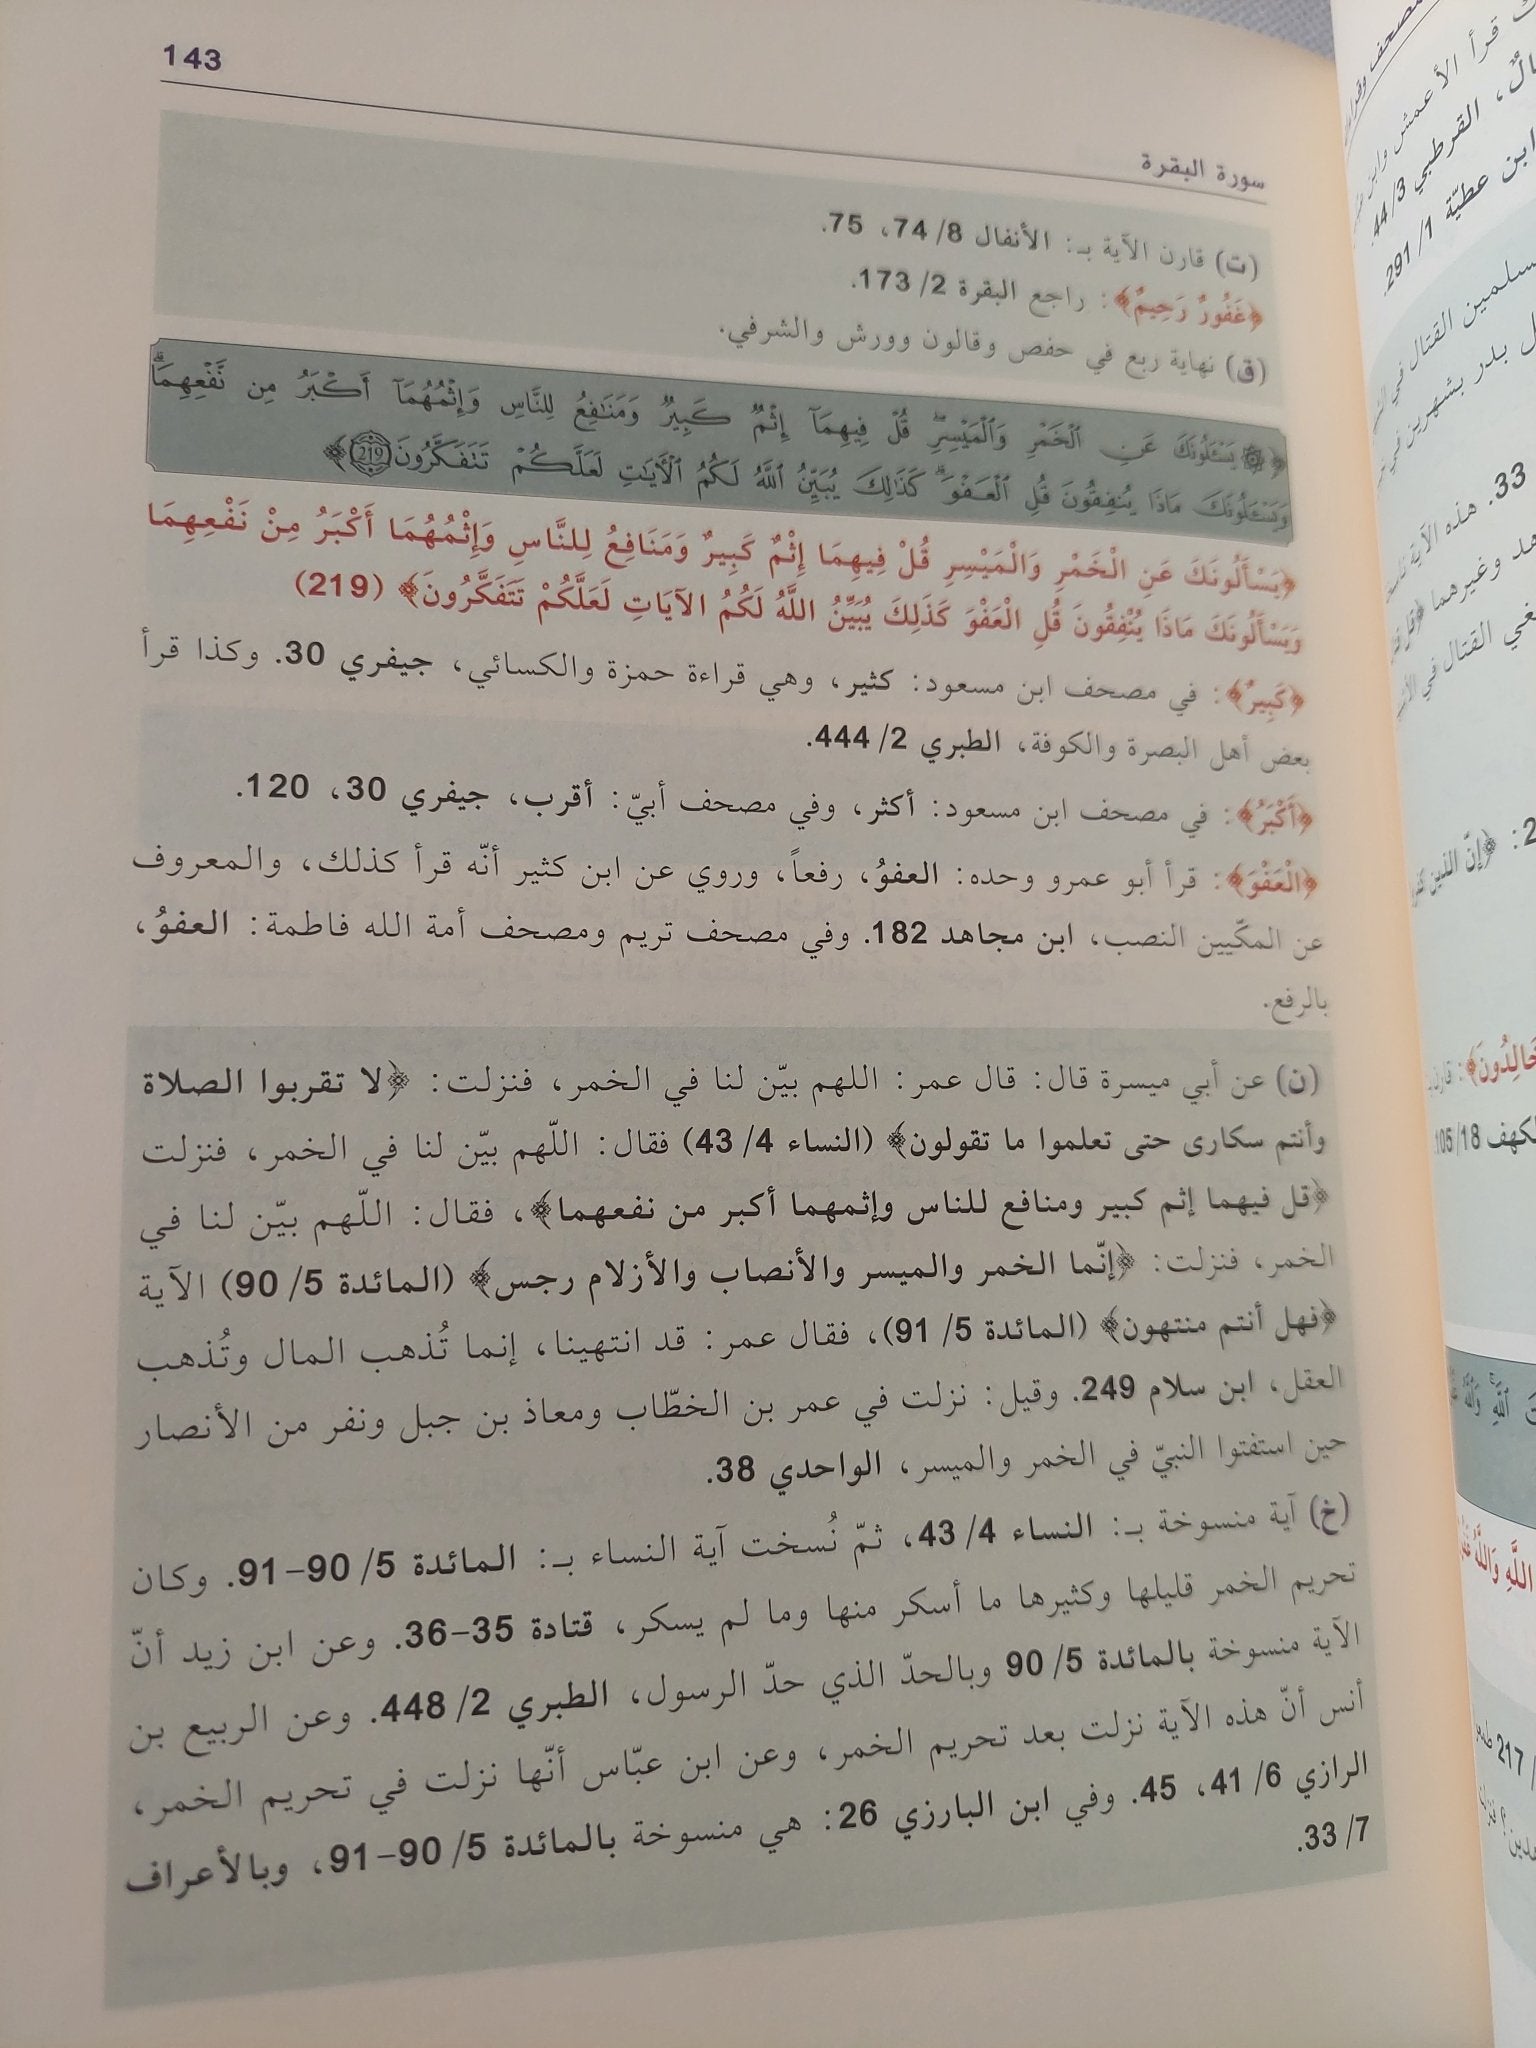 143
سورة البقرة
(ت) قارن الآية بـ: الأنفال 8/ 74، 75.
﴿غَفُورٌ رَحِيمٌ﴾: راجع البقرة 2/ 173.
(ق) نهاية ربع في حفص وقالون وورش والشرفي.
﴿۞ يَسْـَٔلُونَكَ عَنِ ٱلْخَمْرِ وَٱلْمَيْسِرِۖ قُلْ فِيهِمَآ إِثْمٌ كَبِيرٌ وَمَنَٰفِعُ لِلنَّاسِ وَإِثْمُهُمَآ أَكْبَرُ مِن نَّفْعِهِمَاۗ
وَيَسْـَٔلُونَكَ مَاذَا يُنفِقُونَ قُلِ ٱلْعَفْوَۗ كَذَٰلِكَ يُبَيِّنُ ٱللَّهُ لَكُمُ ٱلْـَٔايَٰتِ لَعَلَّكُمْ تَتَفَكَّرُونَ 219﴾
﴿يَسْأَلُونَكَ عَنِ الْخَمْرِ وَالْمَيْسِرِ قُلْ فِيهِمَا إِثْمٌ كَبِيرٌ وَمَنَافِعُ لِلنَّاسِ وَإِثْمُهُمَا أَكْبَرُ مِنْ نَفْعِهِمَا
وَيَسْأَلُونَكَ مَاذَا يُنْفِقُونَ قُلِ الْعَفْوَ كَذَلِكَ يُبَيِّنُ اللَّهُ لَكُمُ الآيَاتِ لَعَلَّكُمْ تَتَفَكَّرُونَ﴾ (219)
﴿كَبِيرٌ﴾: في مصحف ابن مسعود: كثير، وهي قراءة حمزة والكسائي، جيفري 30. وكذا قرأ
بعض أهل البصرة والكوفة، الطبري 2/ 444.
﴿أَكْبَرُ﴾: في مصحف ابن مسعود: أكثر، وفي مصحف أبيّ: أقرب، جيفري 30، 120.
﴿الْعَفْوَ﴾: قرأ أبو عمرو وحده: العفوُ، رفعاً، وروي عن ابن كثير أنّه قرأ كذلك، والمعروف
عن المكّيين النصب، ابن مجاهد 182. وفي مصحف تريم ومصحف أمة الله فاطمة: العفوُ،
بالرفع.
(ن) عن أبي ميسرة قال: قال عمر: اللهم بيّن لنا في الخمر، فنزلت: ﴿لا تقربوا الصلاة
وأنتم سكارى حتى تعلموا ما تقولون﴾ (النساء 4/ 43) فقال: اللّهم بيّن لنا في الخمر، فنزلت
﴿قل فيهما إثم كبير ومنافع للناس وإثمهما أكبر من نفعهما﴾، فقال: اللّهم بيّن لنا في
الخمر، فنزلت: ﴿إنّما الخمر والميسر والأنصاب والأزلام رجس﴾ (المائدة 5/ 90) الآية
﴿فهل أنتم منتهون﴾ (المائدة 5/ 91)، فقال عمر: قد انتهينا، إنما تُذهب المال وتُذهب
العقل، ابن سلام 249. وقيل: نزلت في عمر بن الخطّاب ومعاذ بن جبل ونفر من الأنصار
حين استفتوا النبيّ في الخمر والميسر، الواحدي 38.
(خ) آية منسوخة بـ: النساء 4/ 43، ثمّ نُسخت آية النساء بـ: المائدة 5/ 90–91. وكان
تحريم الخمر قليلها وكثيرها ما أسكر منها وما لم يسكر، قتادة 35–36. وعن ابن زيد أنّ
الآية منسوخة بالمائدة 5/ 90 وبالحدّ الذي حدّ الرسول، الطبري 2/ 448. وعن الربيع بن
أنس أنّ هذه الآية نزلت بعد تحريم الخمر، وعن ابن عبّاس أنّها نزلت في تحريم الخمر،
الرازي 6/ 41، 45. وفي ابن البارزي 26: هي منسوخة بالمائدة 5/ 90–91، وبالأعراف
7/ 33.
قرأ الأعمش وابن
القرطبي 3/ 44.
ابن عطيّة 1/ 291.
القتال في
بدر بشهرين في
33. هذه الآية
وغيرهما
القتال في
﴿إنّ الذين
خَالِدُونَ﴾:
الكهف 18/ 105
ٱللَّهِ وَٱللَّهُ
اللَّهِ وَاللَّهُ
217